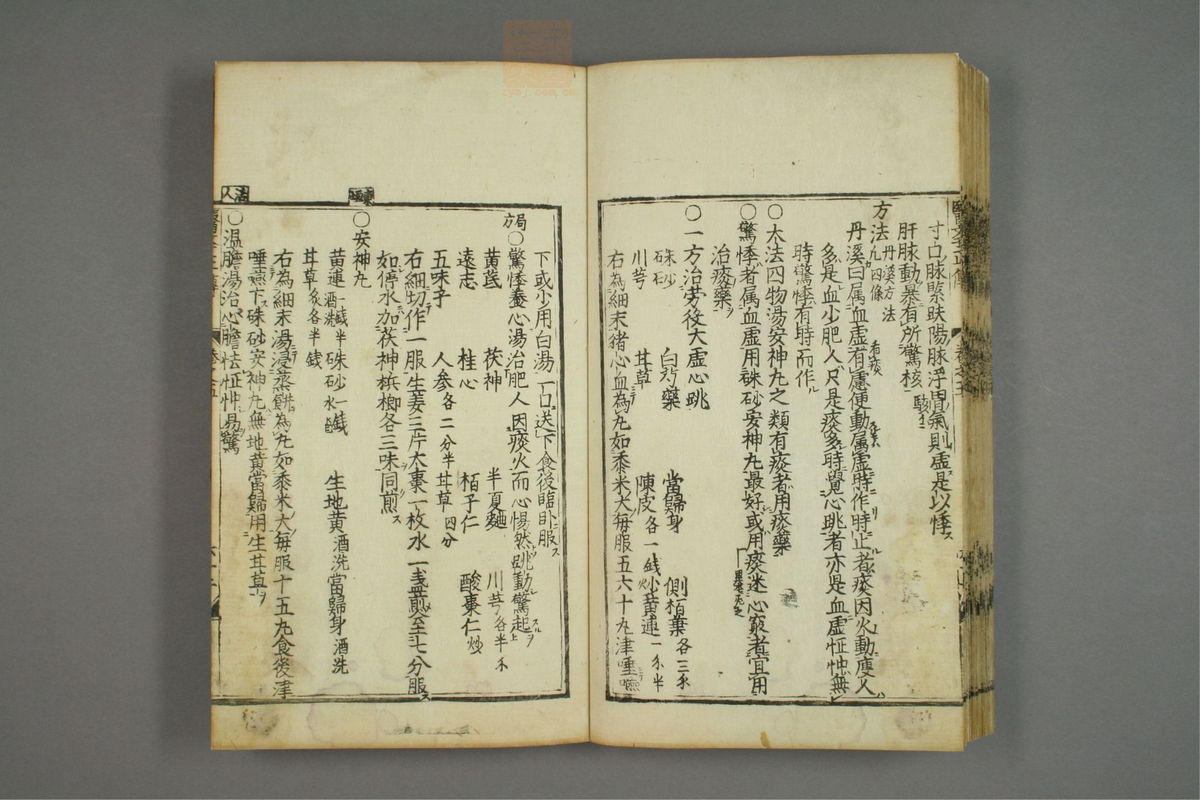 寸口脉緊趺陽脉浮胃氣則虛是以悸
肝脉動暴有所驚核
方法 丹溪方法 凡四條
丹溪曰属血虛有慮便動属虛時作時止者痰因火動瘦人
多是血少肥人只是痰多時覺心跳者亦是血虛怔忡無
時驚悸有時而作
○大法四物湯安神丸之類有痰者用痰藥
○驚悸者属血虛用硃砂安神丸最好或用痰迷心竅者宜用
治痰藥
○一方治劳役大虛心跳
硃砂 白芍藥 當歸身 側栢葉各三分
川芎 甘草 陳皮各一錢 炒黃連一分半
右為細末猪心血為丸如黍米大每服五六十丸津唾嚥
下或少用白湯一口送下食後臨卧服
局方○驚悸養心湯治肥人因痰火而心惕然跳動驚起
黃芪 茯神 半夏麴 川芎各半分
遠志 桂心 栢子仁 酸棗仁炒
五味子 人参各二分半 甘草四分
右細切作一服生姜三片大棗一枚水一盞煎至七分服
如停水加茯神梹榔各三味同煎
東垣
○安神丸
黃連一錢半酒洗 硃砂一錢水飛 生地黄酒洗 當歸身酒洗
甘草炙各半錢
右為細末湯浸蒸餅為丸如黍米大每服十五丸食後津
唾嚥下硃砂安神丸無地黄當歸用生甘草
活人
○温膽湯治心膽怯怔忡易驚